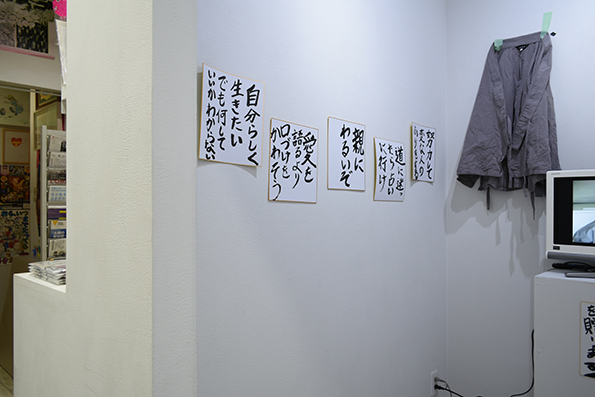 自分らしく
生きたい
でも何して
いいかわからない
愛を
語るより
口づけを
かわそう
親に
わるいぞ
道に迷っ
たら占い
に行け
努力して